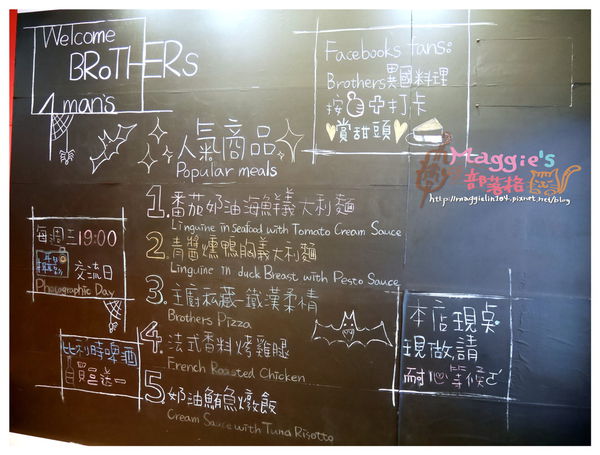 Welcome
BROTHERS
4 man's
Facebooks fans:
Brothers異國料理
按 打卡
賞甜頭
人氣商品
Popular meals
1. 番茄奶油海鮮義大利麵
Linguine in seafood with Tomato Cream Sauce
2. 青醬燻鴨胸義大利麵
Linguine in duck Breast with Pesto Sauce
3. 主廚私藏-鐵漢柔情
Brothers Pizza
4. 法式香料烤雞腿
French Roasted Chicken
5. 奶油鮪魚燉飯
Cream Sauce with Tuna Risotto
每週二19:00
攝影
交流日
Photographic Day
比利時啤酒
買三送一
本店現桌
現做請
耐心等候
Maggie's
部落格
http://maggielin104.pixnet.net/blog